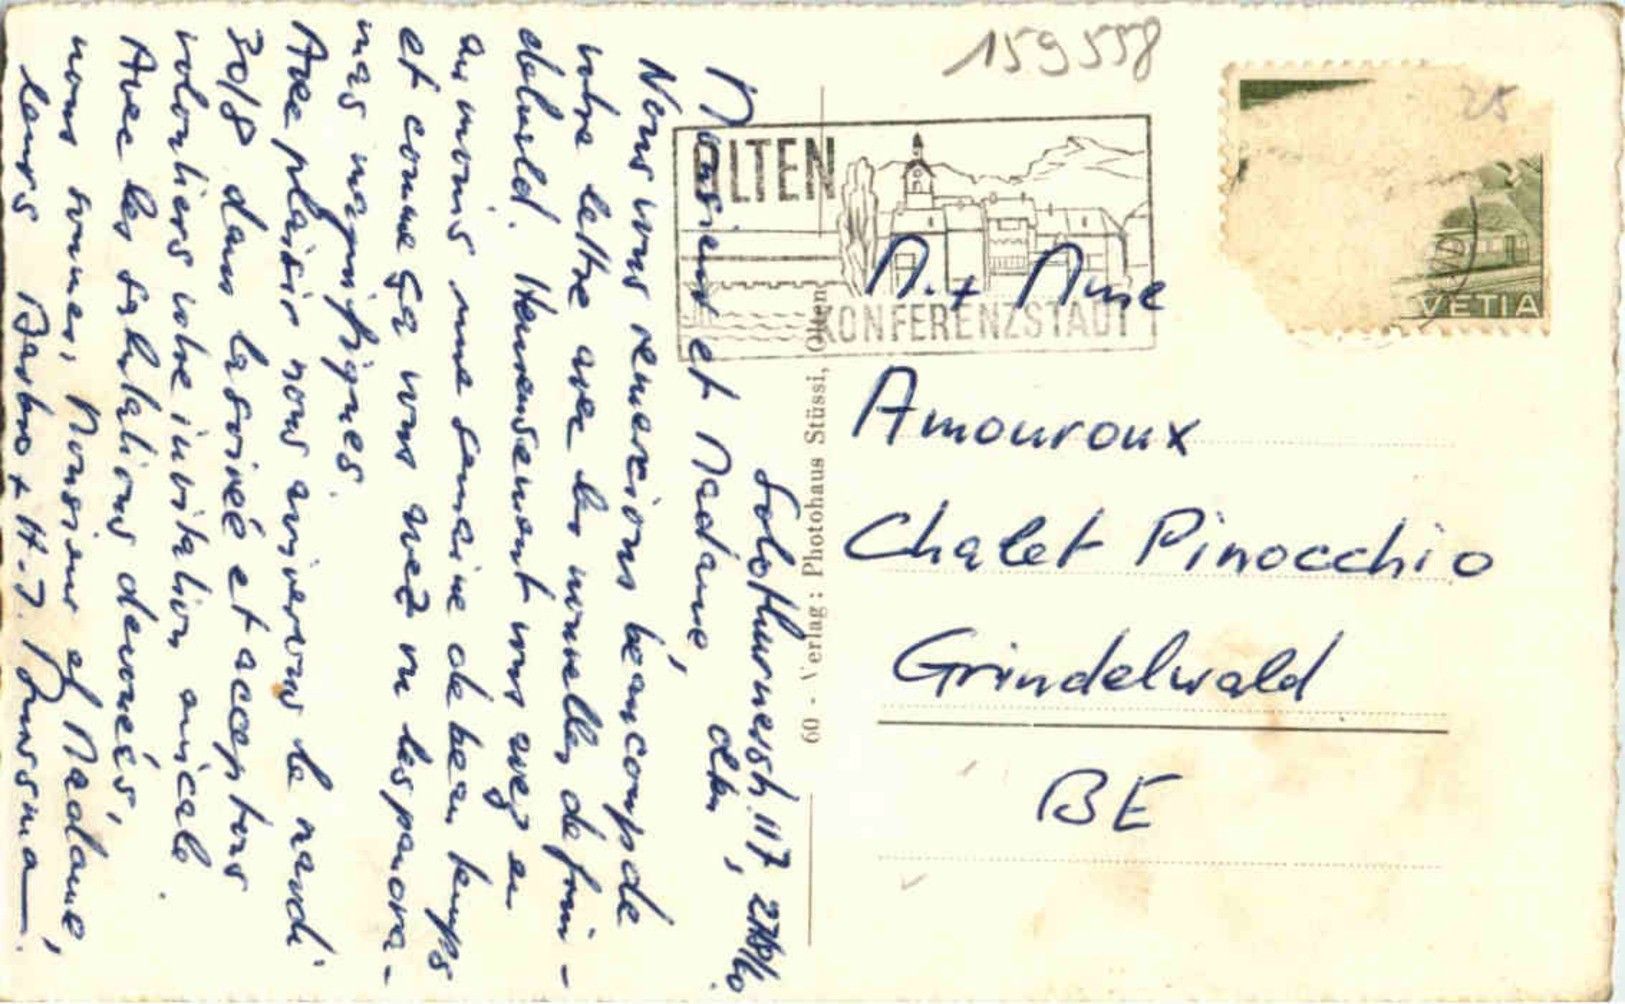 159558
25
OLTEN
KONFERENZSTADT
VETIA
60 - Verlag: Photohaus Stüssi, Olten
M. + Mme
Amouroux
Chalet Pinocchio
Grindelwald
BE
Solothurnerstr. 117
Olten, 27/8/60
Monsieur et Madame,
Nous vous remercions beaucoup de
votre lettre avec les nouvelles de
Heureusement vous avez eu
au moins une semaine de beau temps
et comme ça vous avez vu les panora-
mas magnifiques.
Avec plaisir nous arriverons le mardi
30/8 dans la soirée et acceptons
volontiers votre invitation amicale
Avec les salutations devouées,
nous sommes, Monsieur et Madame,
leurs